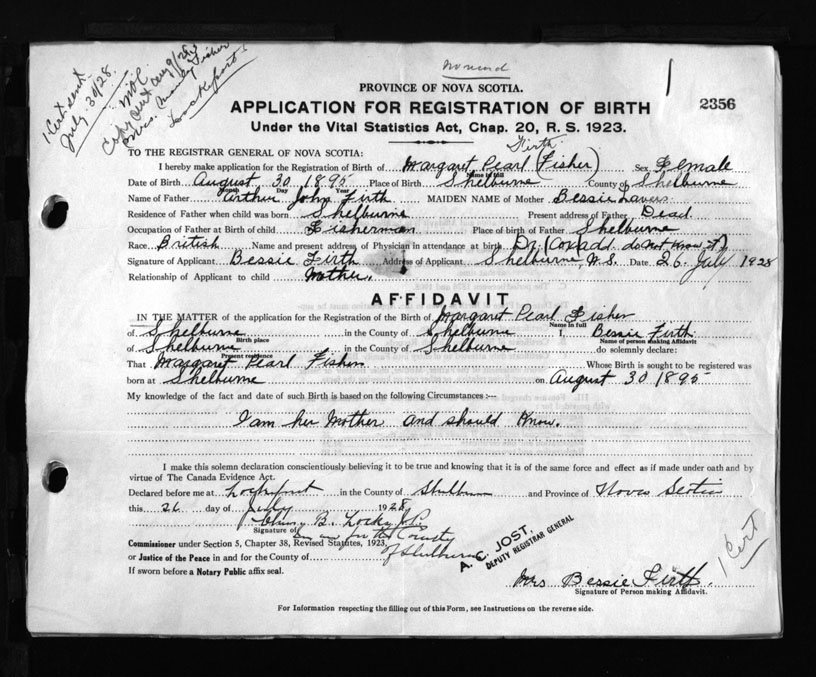 1 Cert sent
July 30/28.
Mrs. Manley Fisher
Lockeport
1
PROVINCE OF NOVA SCOTIA.
APPLICATION FOR REGISTRATION OF BIRTH
2356
Under the Vital Statistics Act, Chap. 20, R. S. 1923.
Firth
TO THE REGISTRAR GENERAL OF NOVA SCOTIA:
I hereby make application for the Registration of Birth of Margaret Pearl (Fisher) Sex Female
Name in full
Date of Birth August 30 1895 Place of Birth Shelburne County of Shelburne
Month Day Year
Name of Father Arthur John Firth MAIDEN NAME of Mother Bessie Lavers
Residence of Father when child was born Shelburne Present address of Father Dead
Occupation of Father at Birth of child Fisherman Place of birth of Father Shelburne
Race British Name and present address of Physician in attendance at birth Dr. do not know
Signature of Applicant Bessie Firth Address of Applicant Shelburne, N.S. Date 26 July 1928
Relationship of Applicant to child Mother.
AFFIDAVIT
IN THE MATTER of the application for the Registration of the Birth of Margaret Pearl Fisher
Name in full
of Shelburne in the County of Shelburne I, Bessie Firth
Birth place Name of person making Affidavit
of Shelburne in the County of Shelburne do solemnly declare:
Present residence
That Margaret Pearl Fisher Whose Birth is sought to be registered was
born at Shelburne on August 30 1895
My knowledge of the fact and date of such Birth is based on the following Circumstances :—
I am her Mother and should know.
I make this solemn declaration conscientiously believing it to be true and knowing that it is of the same force and effect as if made under oath and by
virtue of The Canada Evidence Act.
Declared before me at Lockeport in the County of Shelburne and Province of Nova Scotia
this 26 day of July 1928
B. Locke
Signature of
in and for the County
Commissioner under Section 5, Chapter 38, Revised Statutes, 1923,
of Shelburne
or Justice of the Peace in and for the County of
If sworn before a Notary Public affix seal.
A. C. JOST,
DEPUTY REGISTRAR GENERAL
1 Cert
Mrs Bessie Firth.
Signature of Person making Affidavit.
For Information respecting the filling out of this Form, see Instructions on the reverse side.